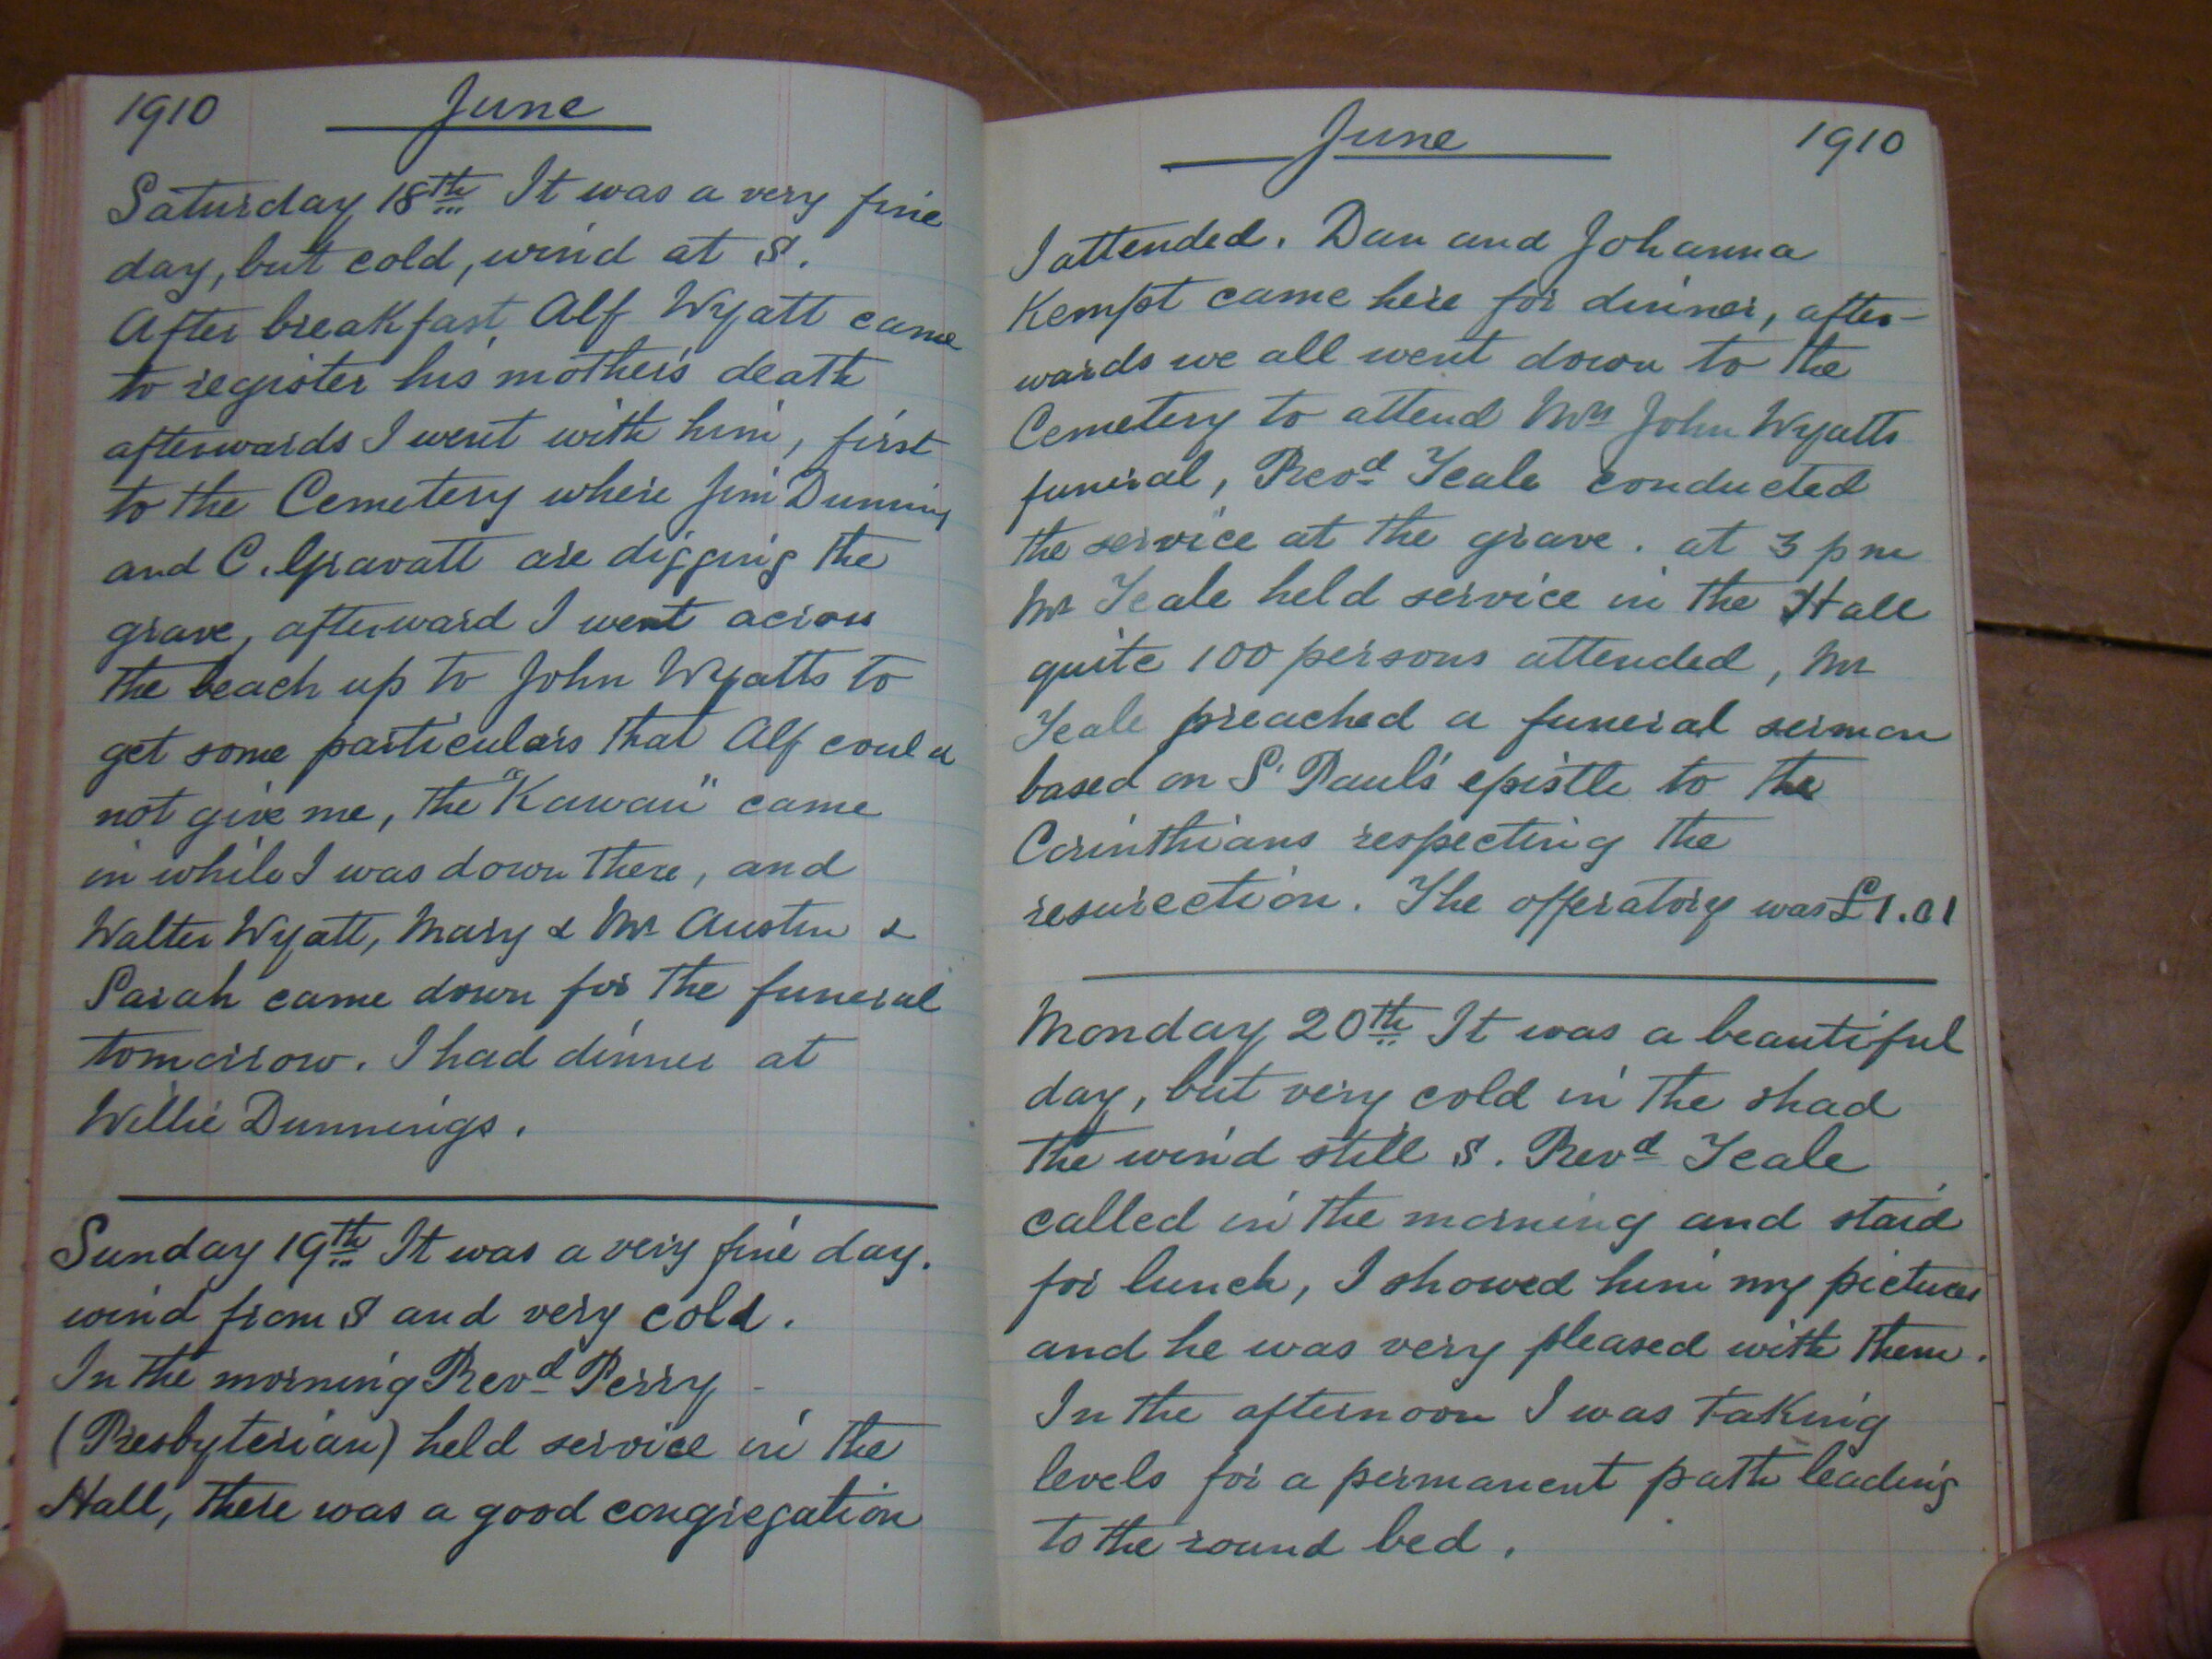 1910 June
Saturday 18th It was a very fine
day, but cold, wind at S.
After breakfast Alf Wyatt came
to register his mother's death
afterwards I went with him, first
to the Cemetery where Jim Dunning
and C. Gravatt are digging the
grave, afterward I went across
the beach up to John Wyatts to
get some particulars that Alf could
not give me, the "Kawau" came
in while I was down there, and
Walter Wyatt, Mary & Mr Austin &
Sarah came down for the funeral
tomorrow. I had dinner at
Willie Dunnings.
Sunday 19th It was a very fine day.
wind from S and very cold.
In the morning Revd Perry
(Presbyterian) held service in the
Hall, there was a good congregation
June 1910
I attended. Dan and Johanna
Kempt came here for dinner, after-
wards we all went down to the
Cemetery to attend Mrs John Wyatts
funeral, Revd Teale conducted
the service at the grave. at 3 pm
Mr Teale held service in the Hall
quite 100 persons attended, Mr
Teale preached a funeral sermon
based on St Paul's epistle to the
Corinthians respecting the
resurection. The offeratory was £1.01
Monday 20th It was a beautiful
day, but very cold in the shad
the wind still S. Revd Teale
called in the morning and staid
for lunch, I showed him my pictures
and he was very pleased with them.
In the afternoon I was taking
levels for a permanent path leading
to the round bed.